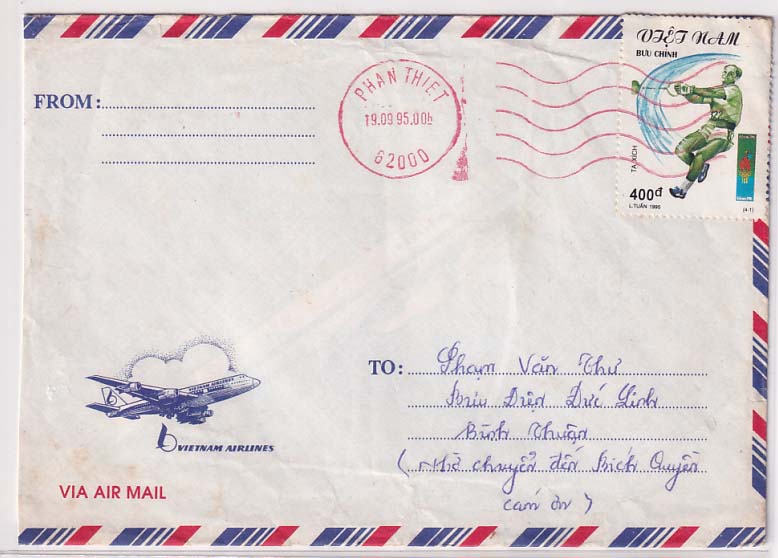 VIỆT NAM
BƯU CHÍNH
TẠ XÍCH
400đ
L.TUẤN 1995
(4-1)
PHAN THIET
19.09 95.00
62000
FROM:
TO: Phạm Văn Thư
Bưu Điện Đức Linh
Bình Thuận
(Nhờ chuyển đến Bích Quyên
cám ơn)
VIETNAM AIRLINES
VIA AIR MAIL